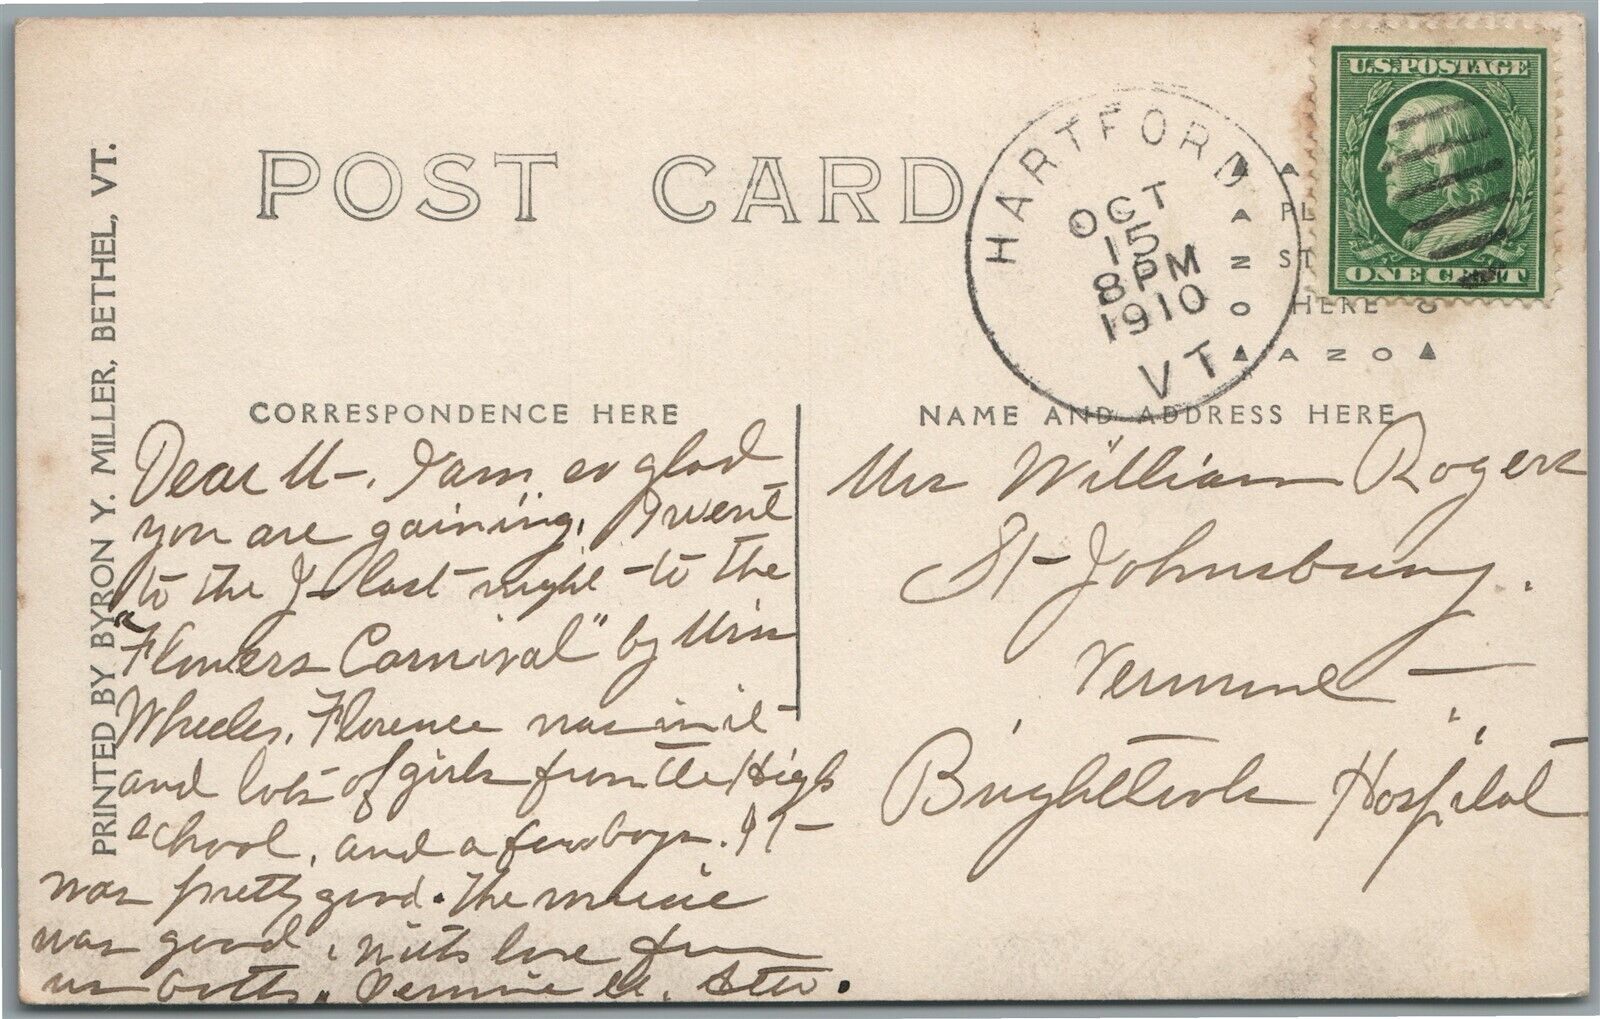 POST CARD
HARTFORD
OCT
15
8 PM
1910
VT
U.S. POSTAGE
ONE CENT
PL
ST
HERE
AZO
AZO
PRINTED BY BYRON Y. MILLER, BETHEL, VT.
CORRESPONDENCE HERE
Dear M-. I am so glad
you are gaining. I went
to the last night to the
"Flowers Carnival" by Miss
Wheeler. Florence was in it
and lots of girls from the High
school, and a few boys. It
was pretty good. The music
was good, with love from
us both.
NAME AND ADDRESS HERE
Mrs William Rogers
St Johnsbury.
Vermont
Brightlook Hospital